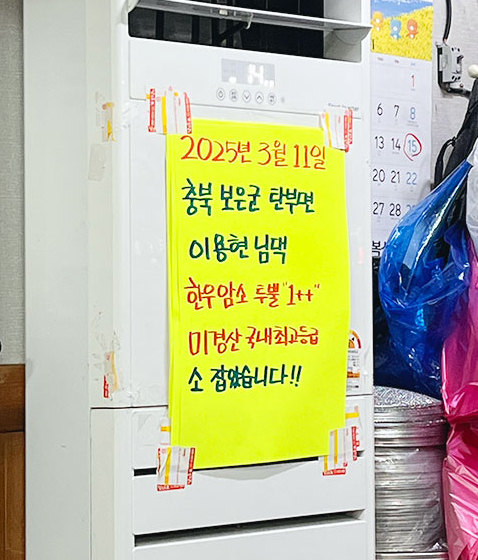 14
2025년 3월 11일
충북 보은군 탄부면
이용현 님댁
한우암소 투뿔 "1++"
미경산 국내최고등급
소 잡았습니다!!
1
6 7 8
13 14 15
20 21 22
27 28 29